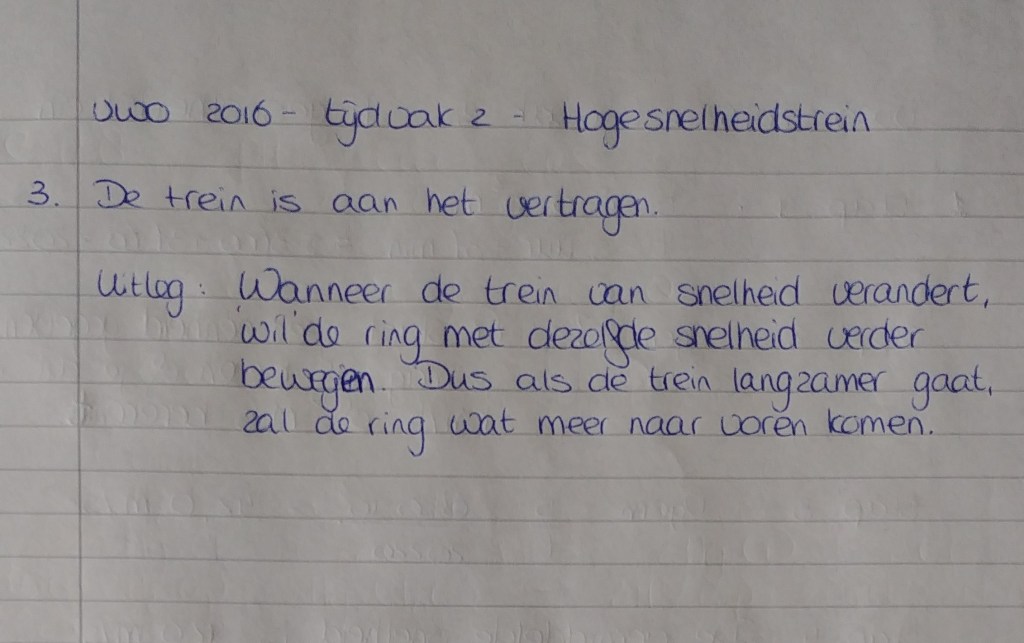 VWO 2016 - tijdvak 2 - Hogesnelheidstrein
3. De trein is aan het vertragen.
Uitleg: Wanneer de trein van snelheid verandert,
wil de ring met dezelfde snelheid verder
bewegen. Dus als de trein langzamer gaat,
zal de ring wat meer naar voren komen.